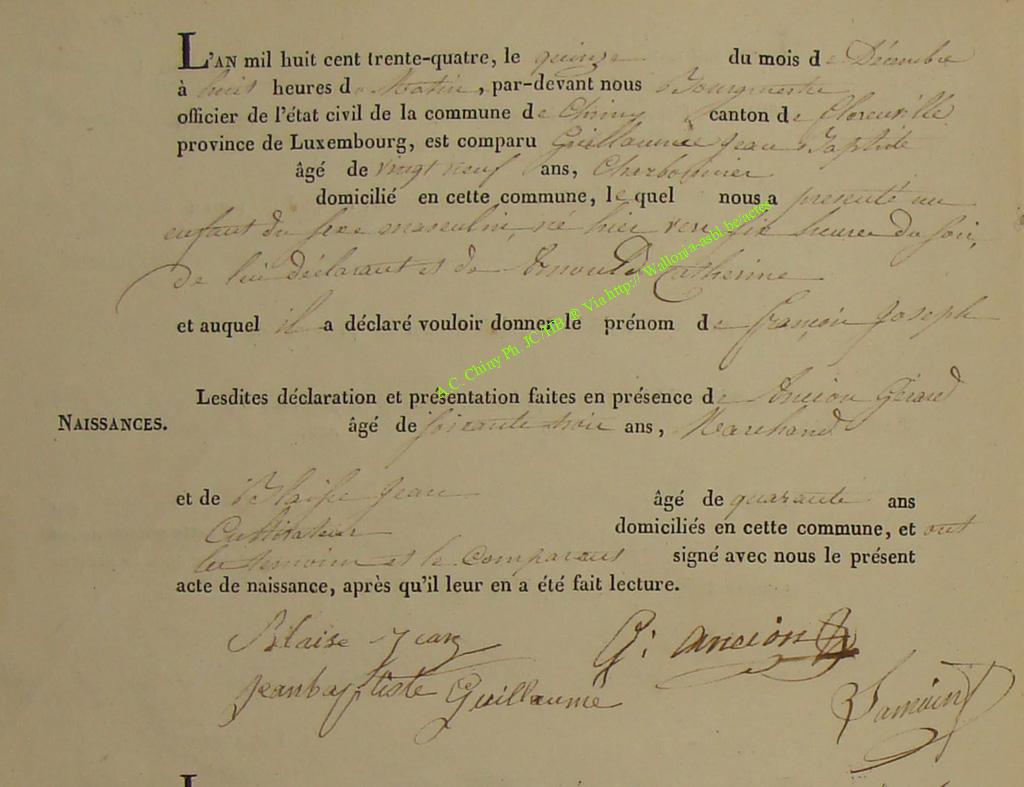 L'AN mil huit cent trente-quatre, le quinze du mois de Décembre
à huit heures du Matin, par-devant nous Bourgmestre
officier de l'état civil de la commune de Chiny canton de florenville
province de Luxembourg, est comparu Guillaume Jean Baptiste
âgé de vingt neuf ans, Charbonnier
domicilié en cette commune, lequel nous a presenté un
enfant du sexe masculin, né hier vers six heures du soir,
de lui déclarant et de Arnould Catherine
et auquel il a déclaré vouloir donner le prénom de françois Joseph
Lesdites déclaration et présentation faites en présence de Ancion Gérard
NAISSANCES.
âgé de soixante trois ans, Marchand
et de Blaise Jean âgé de quarante ans
Cultivateur domiciliés en cette commune, et ont
les temoins et le Comparant signé avec nous le présent
acte de naissance, après qu'il leur en a été fait lecture.
Blaise Jean G: ancion
Jeanbaptiste Guillaume
A.C. Chiny Ph. JC/HB @ Via http:// Wallonia-asbl.be/actes